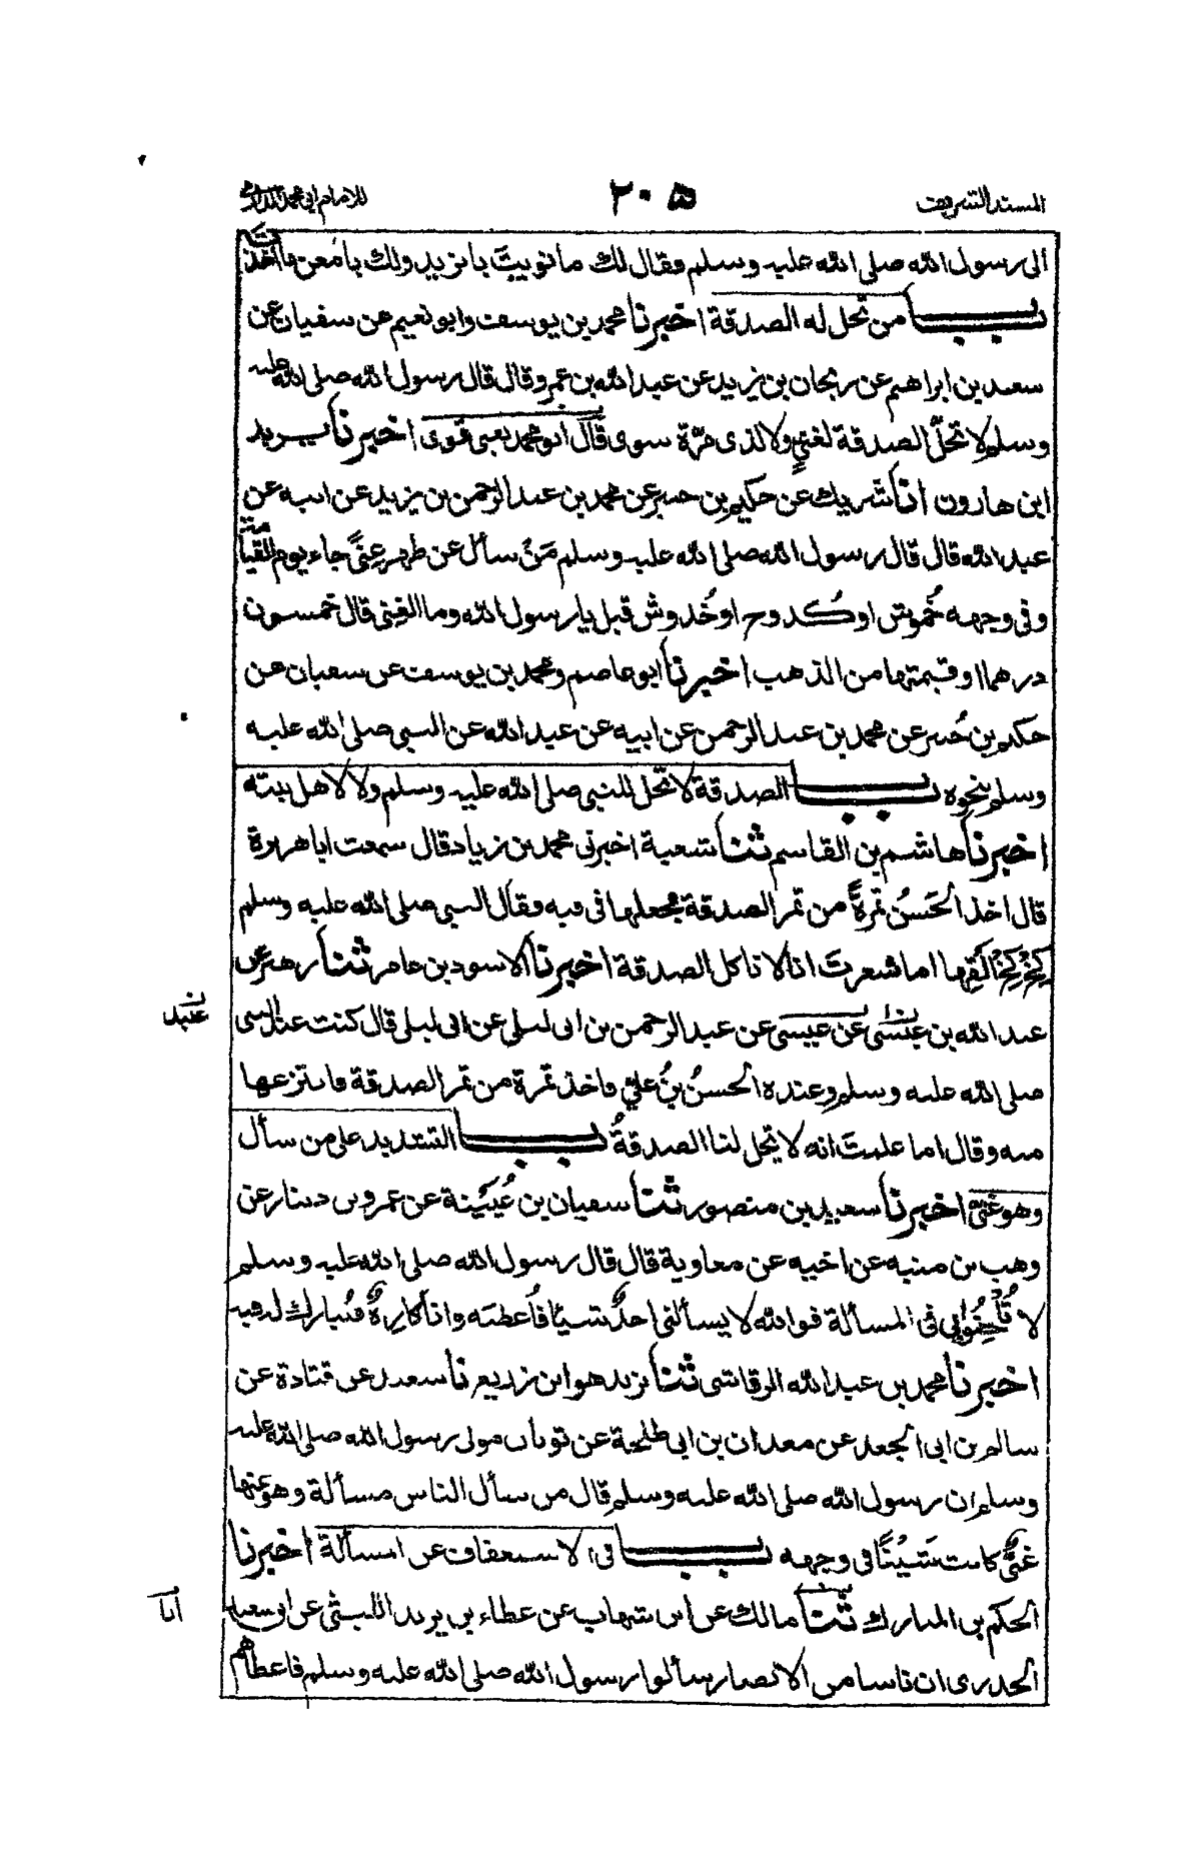 المسند الشريف ٢٠٥ للامام ابي محمد الدارمي
الى رسول الله صلى الله عليه وسلم فقال لك ما نويت يا يزيد ولك يا معن ما اخذت
باب من تحل له الصدقة اخبرنا محمد بن يوسف وابو نعيم عن سفيان عن
سعد بن ابراهيم عن ريحان بن يزيد عن عبد الله بن عمرو قال قال رسول الله صلى الله عليه
وسلم لا تحلّ الصدقة لغنيٍ ولا لذى مِرّة سوى قال ابو محمد يعني قوى اخبرنا يزيد
ابن هارون انا شريك عن حكيم بن جبير عن محمد بن عبد الرحمن بن يزيد عن ابيه عن
عبد الله قال قال رسول الله صلى الله عليه وسلم مَنْ سأل عن ظهر غِنًى جاء يوم القيامة
وفي وجهه خُموش او كُدوح او خُدوش قيل يا رسول الله وما الغِنى قال خمسون
درهما او قيمتها من الذهب اخبرنا ابو عاصم ومحمد بن يوسف عن سفيان عن
حكيم بن جُبير عن محمد بن عبد الرحمن عن ابيه عن عبد الله عن النبي صلى الله عليه
وسلم بنحوه باب الصدقة لا تحل للنبي صلى الله عليه وسلم ولا لاهل بيته
اخبرنا هاشم بن القاسم ثنا شعبة اخبرني محمد بن زياد قال سمعت ابا هريرة
قال اخذ الحَسَنُ تمرةً من تمر الصدقة فجعلها في فيه فقال النبي صلى الله عليه وسلم
كِخْ كِخْ اَلْقِها اما شعرتَ انا لا ناكل الصدقة اخبرنا الاسود بن عامر ثنا زهير عن
عبد الله بن عيسى عن عيسى عن عبد الرحمن بن ابى ليلى عن ابى ليلى قال كنت عند النبى
عند
صلى الله عليه وسلم وعنده الحسنُ بنُ عليّ فاخذ تمرة من تمر الصدقة فانتزعها
منه وقال اما علمتَ انه لا تحل لنا الصدقةُ باب التشديد على من سأل
وهو غنيّ اخبرنا سعيد بن منصور ثنا سفيان بن عُيَيْنة عن عمرو بن دينار عن
وهب بن منبه عن اخيه عن معاوية قال قال رسول الله صلى الله عليه وسلم
لا تُلْحِفُوا بي فى المسألة فوالله لا يسألنى احدٌ شيئًا فاُعطيَه وانا كارِهٌ فيُبارك له فيه
اخبرنا محمد بن عبد الله الرقاشى ثنا يزيد هو ابن زريع نا سعيد عن قتادة عن
سالم بن ابى الجعد عن معدان بن ابى طلحة عن ثوبان مولى رسول الله صلى الله عليه
وسلم ان رسول الله صلى الله عليه وسلم قال من سأل الناس مسألة وهو عنها
غنىٌّ كانت شَيْنًا فى وجهه باب فى الاستعفاف عن المسألة اخبرنا
الحكم بن المبارك ثنا مالك عن ابن شهاب عن عطاء بن يزيد الليثى عن ابى سعيد
انا
الخدرى ان ناسا من الانصار سألوا رسول الله صلى الله عليه وسلم فاعطاهم